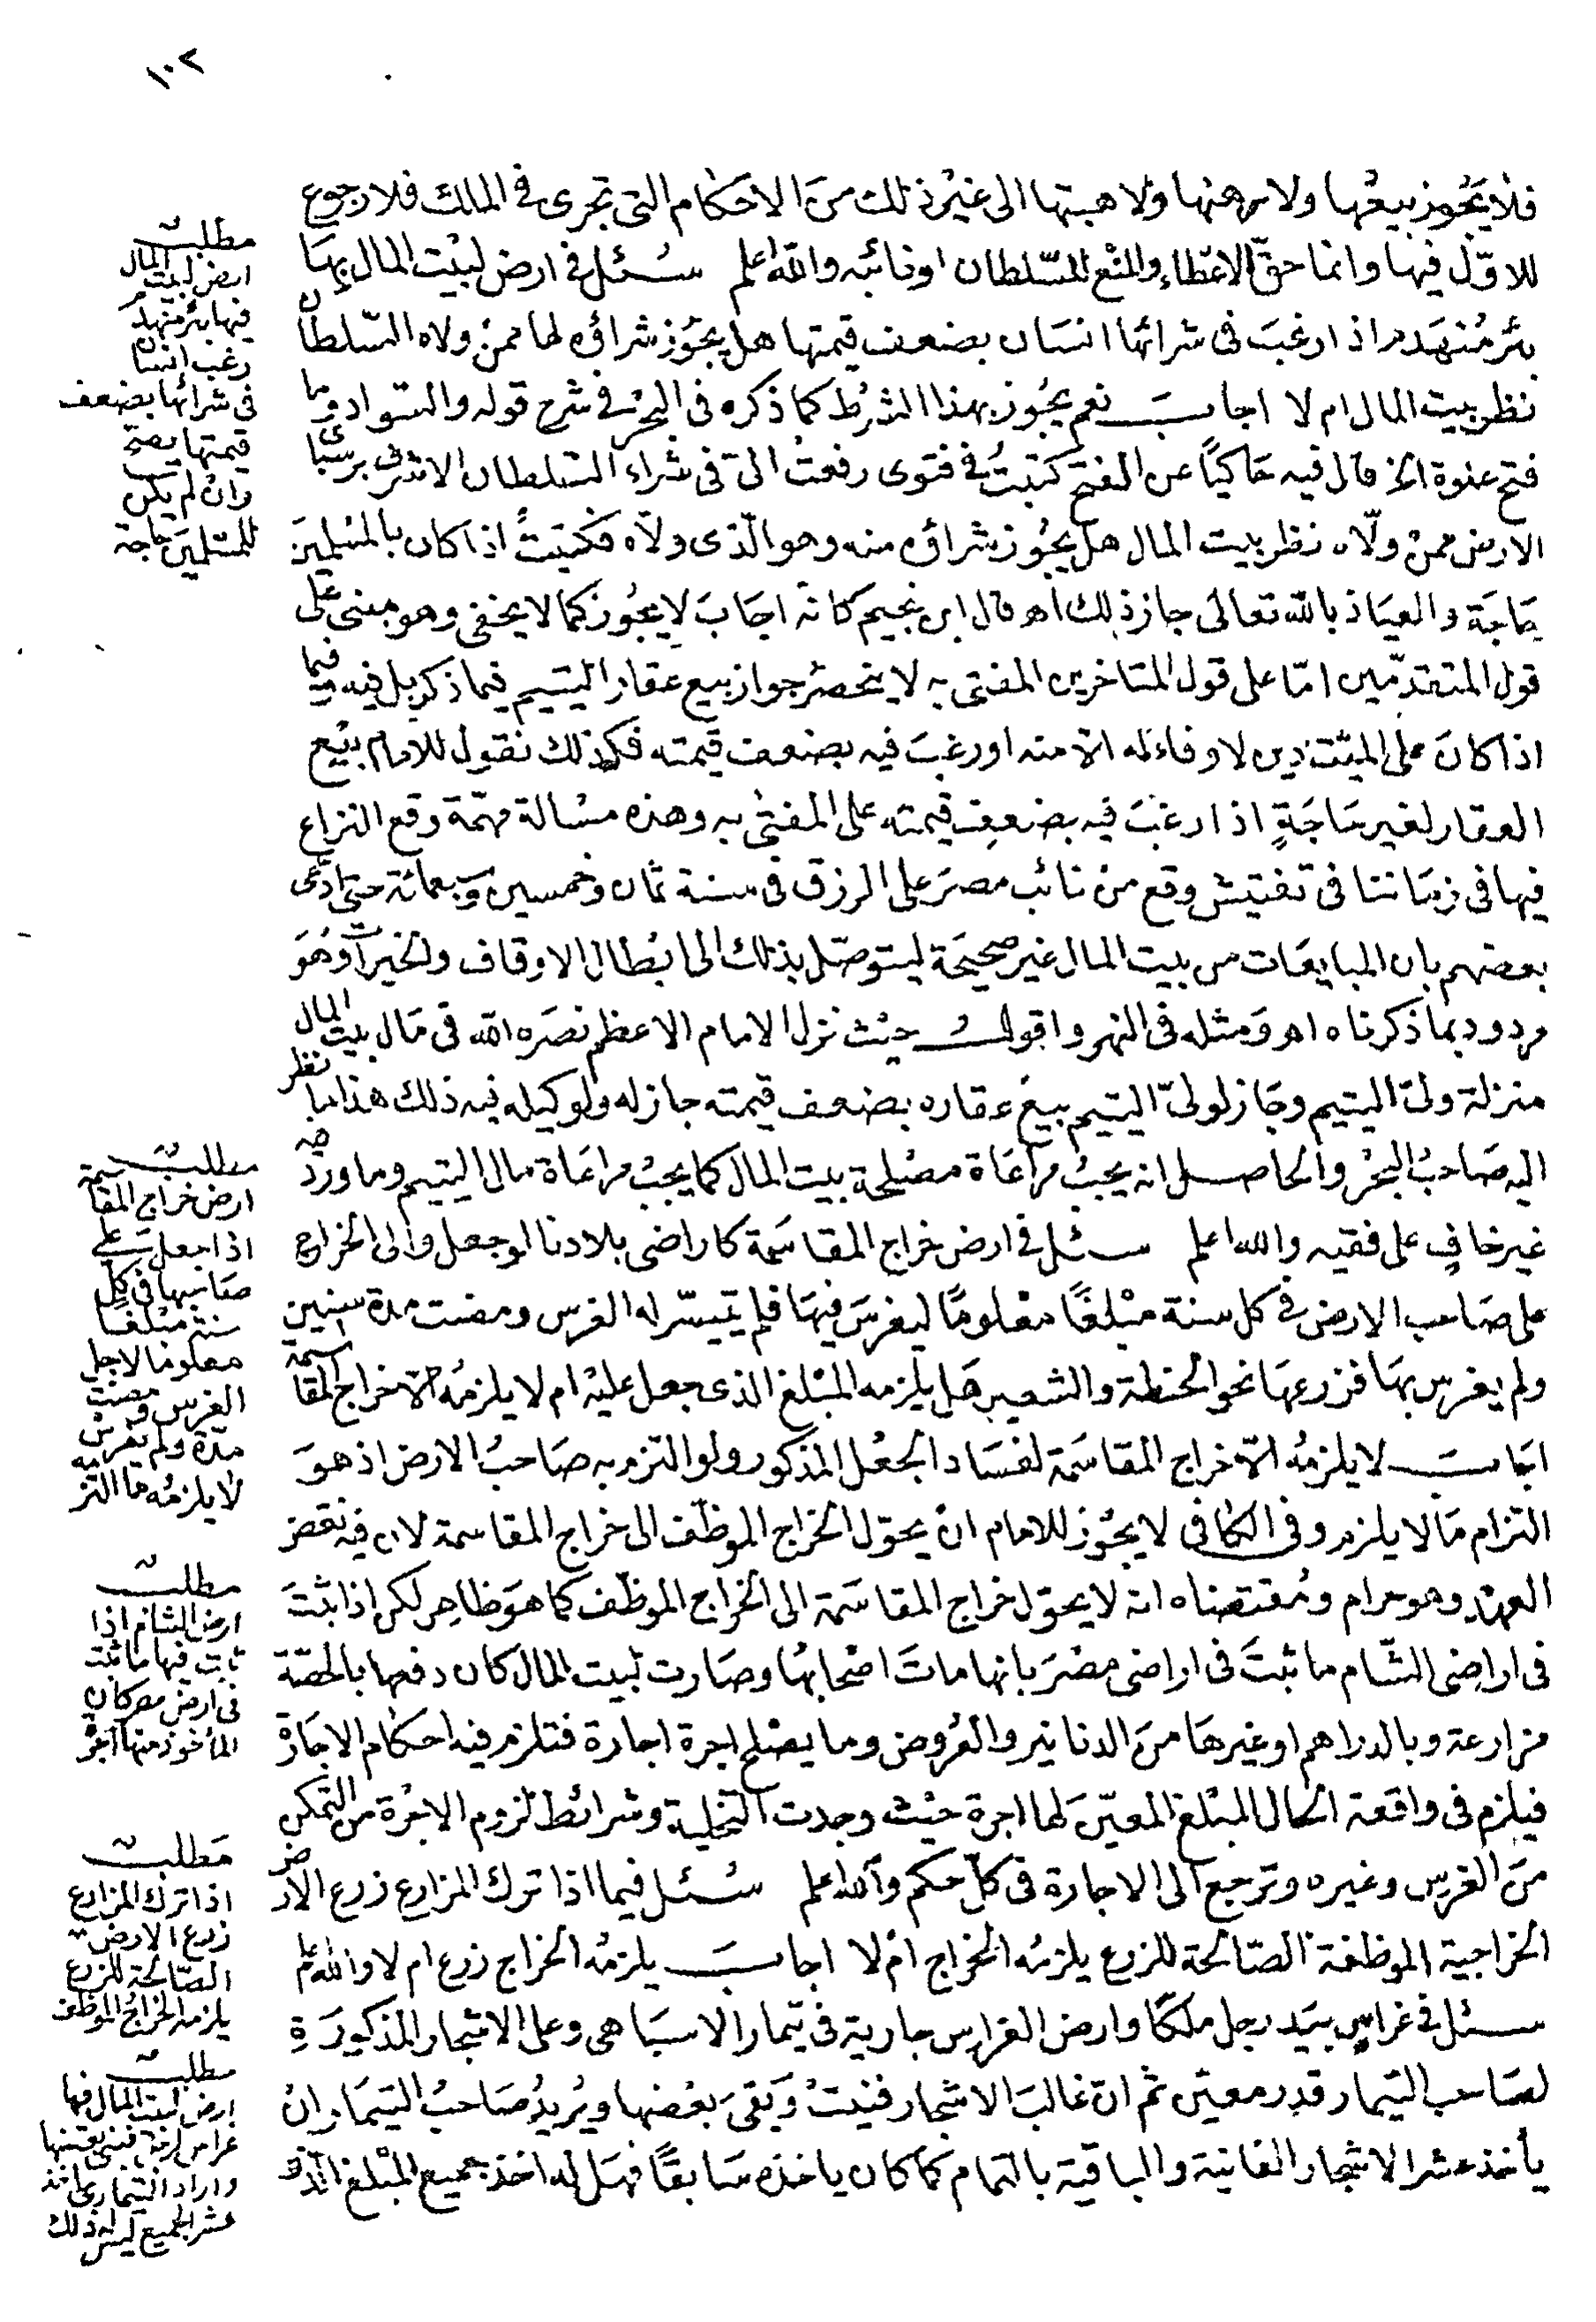 ١٠٢
فلا يجوز بيعها ولا رهنها ولا هبتها الى غير ذلك من الاحكام التى تجرى فى المالك فلا رجوع
للاوّل فيها وانما حقّ الاعطاء والمنع للسّلطان او نائبه والله اعلم سئل فى ارض لبيت المال بها
بئر مُنهَدم اذا رغبَ فى شرائها انسان بضعف قيمتها هل يجوز شراؤه لها ممن ولاه السّلطان
نظر بيت المال ام لا اجاب نعم يجوز بهذا الشرط كما ذكره فى البحر فى شرح قوله والسّواد وما
فتح عنوة الخ قال فيه حاكيًا عن الفتح كتبتُ فى فتوى رفعت الىّ فى شراء السّلطان الاشرف برسباى
الارض ممن ولّاه نظر بيت المال هل يجوز شراؤه منه وهو الّذى ولّاه فكتبتُ اذا كان بالمسلمين
حَاجَة والعياذ بالله تعالى جاز ذلك اهـ قال ابن نجيم كانه اجَابَ لا يجوز كما لا يخفى وهو مبنى على
قول المتقدّمين امّا على قول المتاخرين المفتى به لا ينحصر جواز بيع عقار اليتيم فيما ذكر بل فيه وفيما
اذا كانَ على الميّت دين لا وفاء له الّا منه او رغبَ فيه بضعف قيمته فكذلك نقول للامام بيع
العقار لغير حَاجَةٍ اذا رغبَ فيه بضعفِ قيمته على المفتى به وهذه مسالة مهمّة وقع النزاع
فيها فى زمَاننا فى تفتيش وقع من نائب مصرَ على الرزق فى سنة ثمان وخمسين وتسعمائة حتى ادعى
بعضهم بان المبايعَات من بيت المال غير صحيحَة ليتوصّل بذلك الى ابطال الاوقاف والخيرات وهُوَ
مردود بما ذكرناه اهـ وَمثله فى النهر واقول حيث نزل الامام الاعظم نصَره الله فى مَال بيت المال
منزلة ولىّ اليتيم وجَاز لولىّ اليتيم بيع عقاره بضعف قيمته جاز له ولوكيله فيه ذلك هذا ما نظر
اليه صَاحبُ البحر والحاصل انه يجبُ مرَاعَاة مصلحة بيت المال كما يجب مراعَاة مال اليتيم وما ورد فيه
غير خافٍ على فقيه والله اعلم سئل فى ارض خراج المقاسَمة كاراضى بلادنا لو جعل والى الخراج
على صَاحب الارض فى كل سنة مبلغًا معلومًا ليغرسَ فيهَا فلم يتيسّر له الغرس ومضت مدة سنين
ولم يغرس بهَا فزرعهَا نحو الحنطة والشعير هَل يلزمه المبلغ الذى جعل عليه ام لا يلزمه الّا خراج المقاسمة
اجَابَ لا يلزمُه الّا خراج المقاسَمة لفسَاد الجعْل المذكور ولو التزم به صَاحبُ الارض اذ هوَ
التزام مَا لا يلزم وفى الكافى لا يجُوز للامام انْ يحوّل الخراج الموظّف الى خراج المقاسمة لان فيه نقض
العهد وهو حرام ومُقتضاه انه لا يحوّل خراج المقاسَمة الى الخراج الموظّف كما هوَ ظاهِر لكن اذا ثبتَ
فى اراضى الشّام ما ثبتَ فى اراضى مصْرَ بانها ماتَ اصْحابهَا وصَارت لبيت المال كان دفعها بالحصّة
مزارعة وبالدراهم او غيرهَا منَ الدنانير والعُروض وما يصْلح اجرة اجارة فتلزم فيه احكام الاجَارة
فيلزم فى واقعة الحال المبْلغ المعيّن لهَا اجرة حيْث وجدت التخلية وشرائط لزوم الاجْرة من التمكن
منَ الغرس وغيره وترجع الى الاجارة فى كلّ حكم والله اعلم سُئل فيما اذا ترك المزارع زرع الارض
الخراجية الموظفة الصّالحة للزرع يلزمُه الخراج امْ لا اجابَ يلزمُه الخراج زرع ام لا والله اعلم
سئل فى غراسٍ بيَد رجل ملكًا وارض الغراس جارية فى تيمار الاسبَاهى وعلى الاشجار المذكورَةِ
لصَاحب التيمار قدر معيّن ثم انّ غالبَ الاشجار فنيتْ وَبَقىَ بعْضها ويُريدُ صَاحبُ التيمَار انْ
يأخذ عشر الاشجار الفانية والباقية بالتمام كما كان ياخذه سَابقًا فهَل له اخذ جميع المبْلغ الّذى
مطلب
ارض لبيت المال
فيها بئر منهدم
رغب انسان
فى شرائها بضعف
قيمتها يصحّ
وانْ لم يكن
للمسْلمينَ حاجة
مطلب
ارض خراج المقاسمة
اذا جعل على
صَاحبها فى كلّ
سنة مبْلغًا
معلومًا لاجل
الغرس ومضت
مدّة ولم يغرس
لا يلزمُه ما التزمه
مطلب
ارض الشام اذا
ثبت فيها ما ثبت
فى ارض مصر كان
المأخوذ منها اجرة
مَطلب
اذا ترك المزارع
زرع الارض
الصّالحة للزرع
يلزمه الخراجُ الموظف
مطلب
ارض لبيت المال فيها
غراس لرجل ففنى بعضها
واراد التيمارى اخذ
عشر الجميع ليس له ذلك